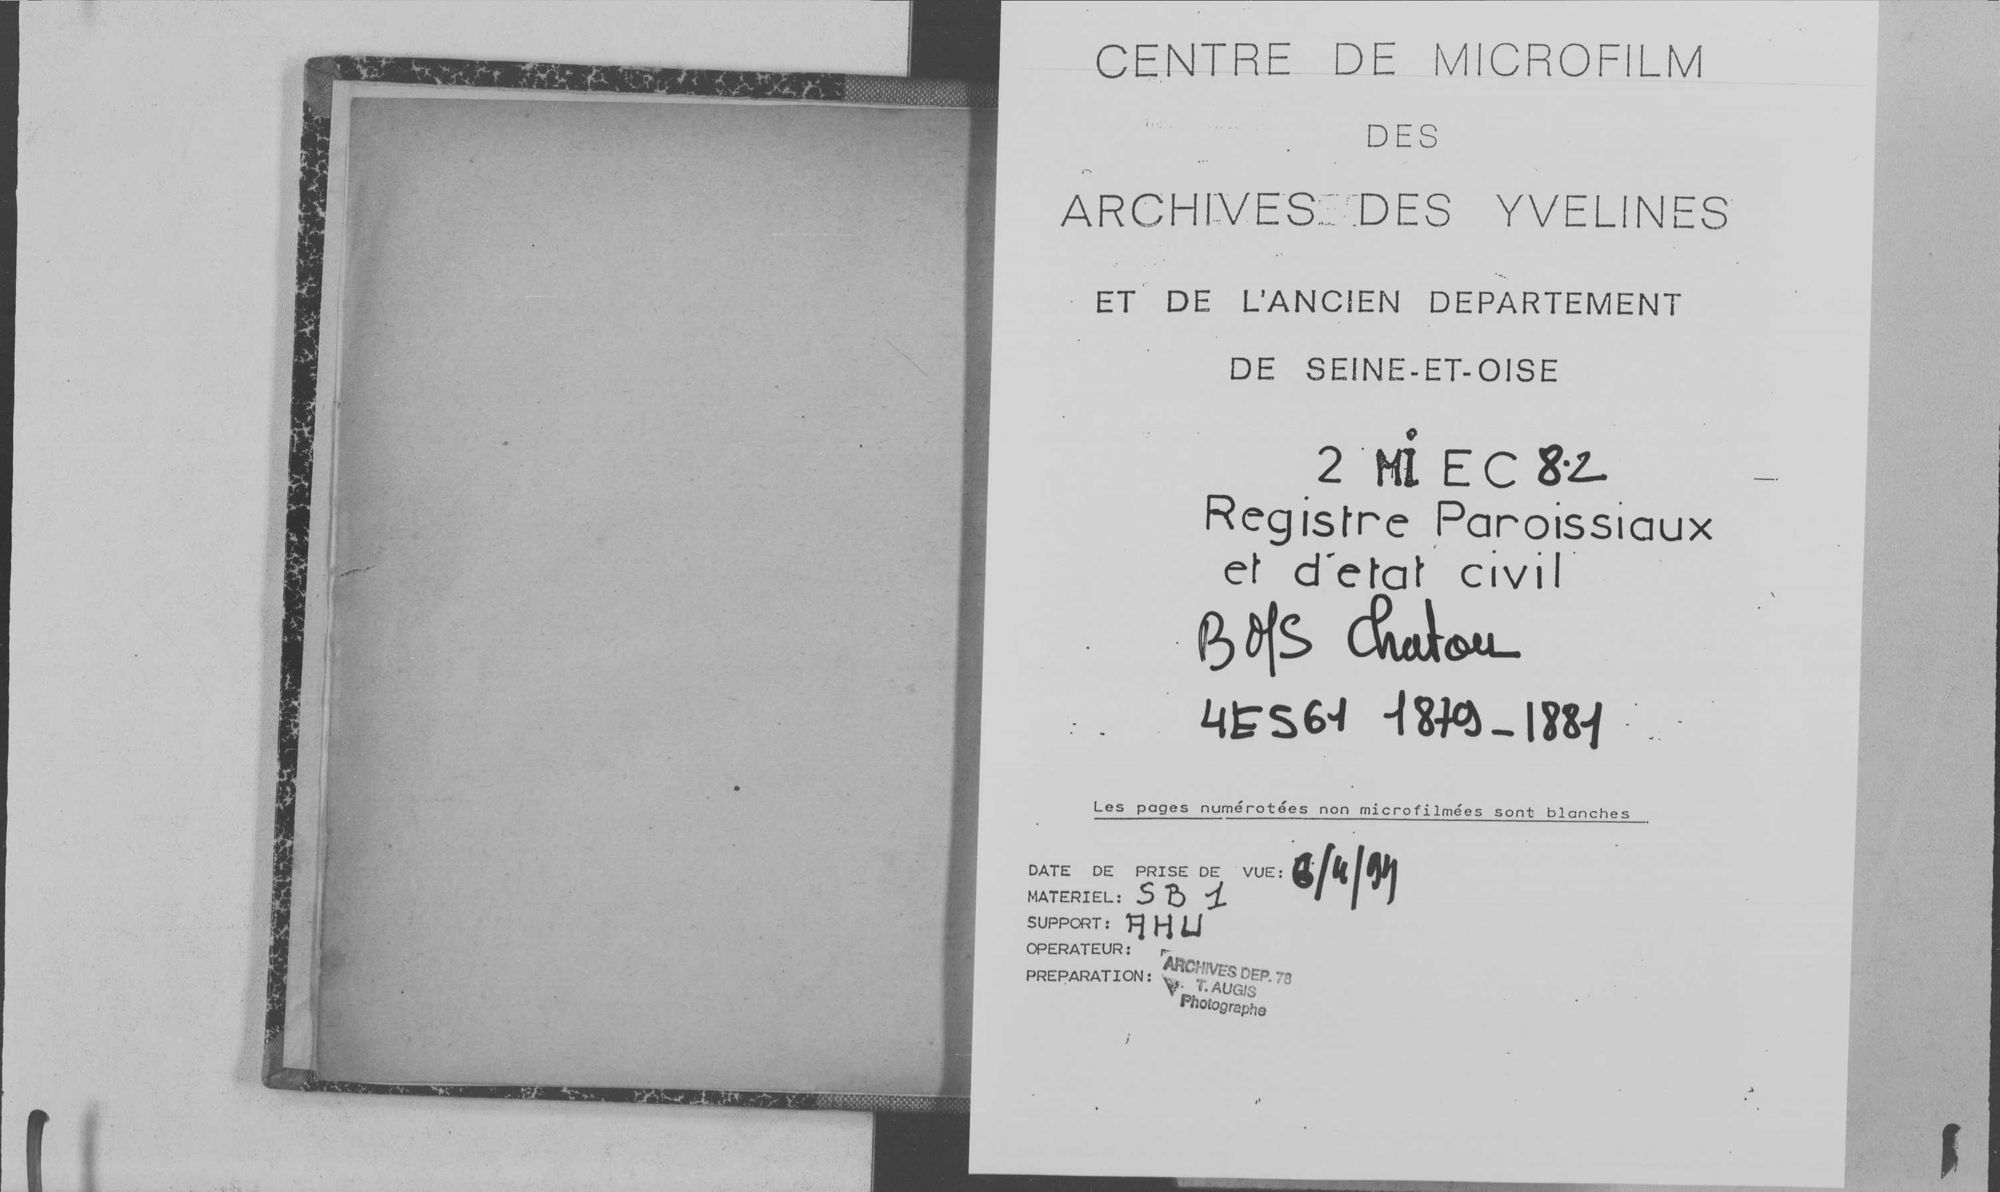 CENTRE DE MICROFILM
DES
ARCHIVES DES YVELINES
ET DE L'ANCIEN DEPARTEMENT
DE SEINE-ET-OISE
2 Mi EC 82
Registre Paroissiaux
et d'etat civil
Chatou
4E561 1879-1881
Les pages numérotées non microfilmées sont blanches
DATE DE PRISE DE VUE: 6/4/94
MATERIEL: SB 1
SUPPORT: AHU
OPERATEUR:
PREPARATION:
ARCHIVES DEP. 78
T. AUGIS
Photographe